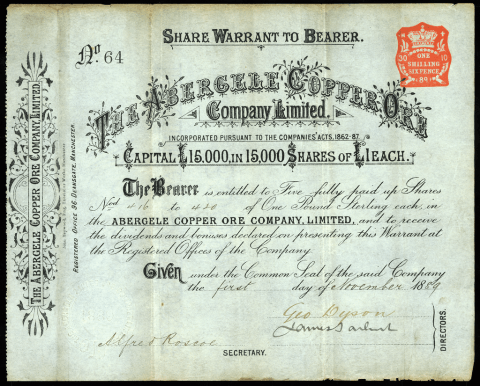 SHARE WARRANT TO BEARER.
No 64
THE ABERGELE COPPER ORE
Company Limited.
INCORPORATED PURSUANT TO THE COMPANIES' ACTS, 1862-87.
CAPITAL £15,000, IN 15,000 SHARES OF £1 EACH.
The Bearer is entitled to Five fully paid up Shares
Nos 416 to 420 of One Pound Sterling each, in
the ABERGELE COPPER ORE COMPANY, LIMITED, and to receive
the dividends and bonuses declared on presenting this Warrant at
the Registered Offices of the Company
Given under the Common Seal of the said Company
the first day of November 1889
Geo Dyson
James
DIRECTORS.
Alfred Roscoe
SECRETARY.
THE ABERGELE COPPER ORE COMPANY, LIMITED.
REGISTERED OFFICE 96 DEANSGATE, MANCHESTER
30 10
ONE
SHILLING
SIXPENCE
89